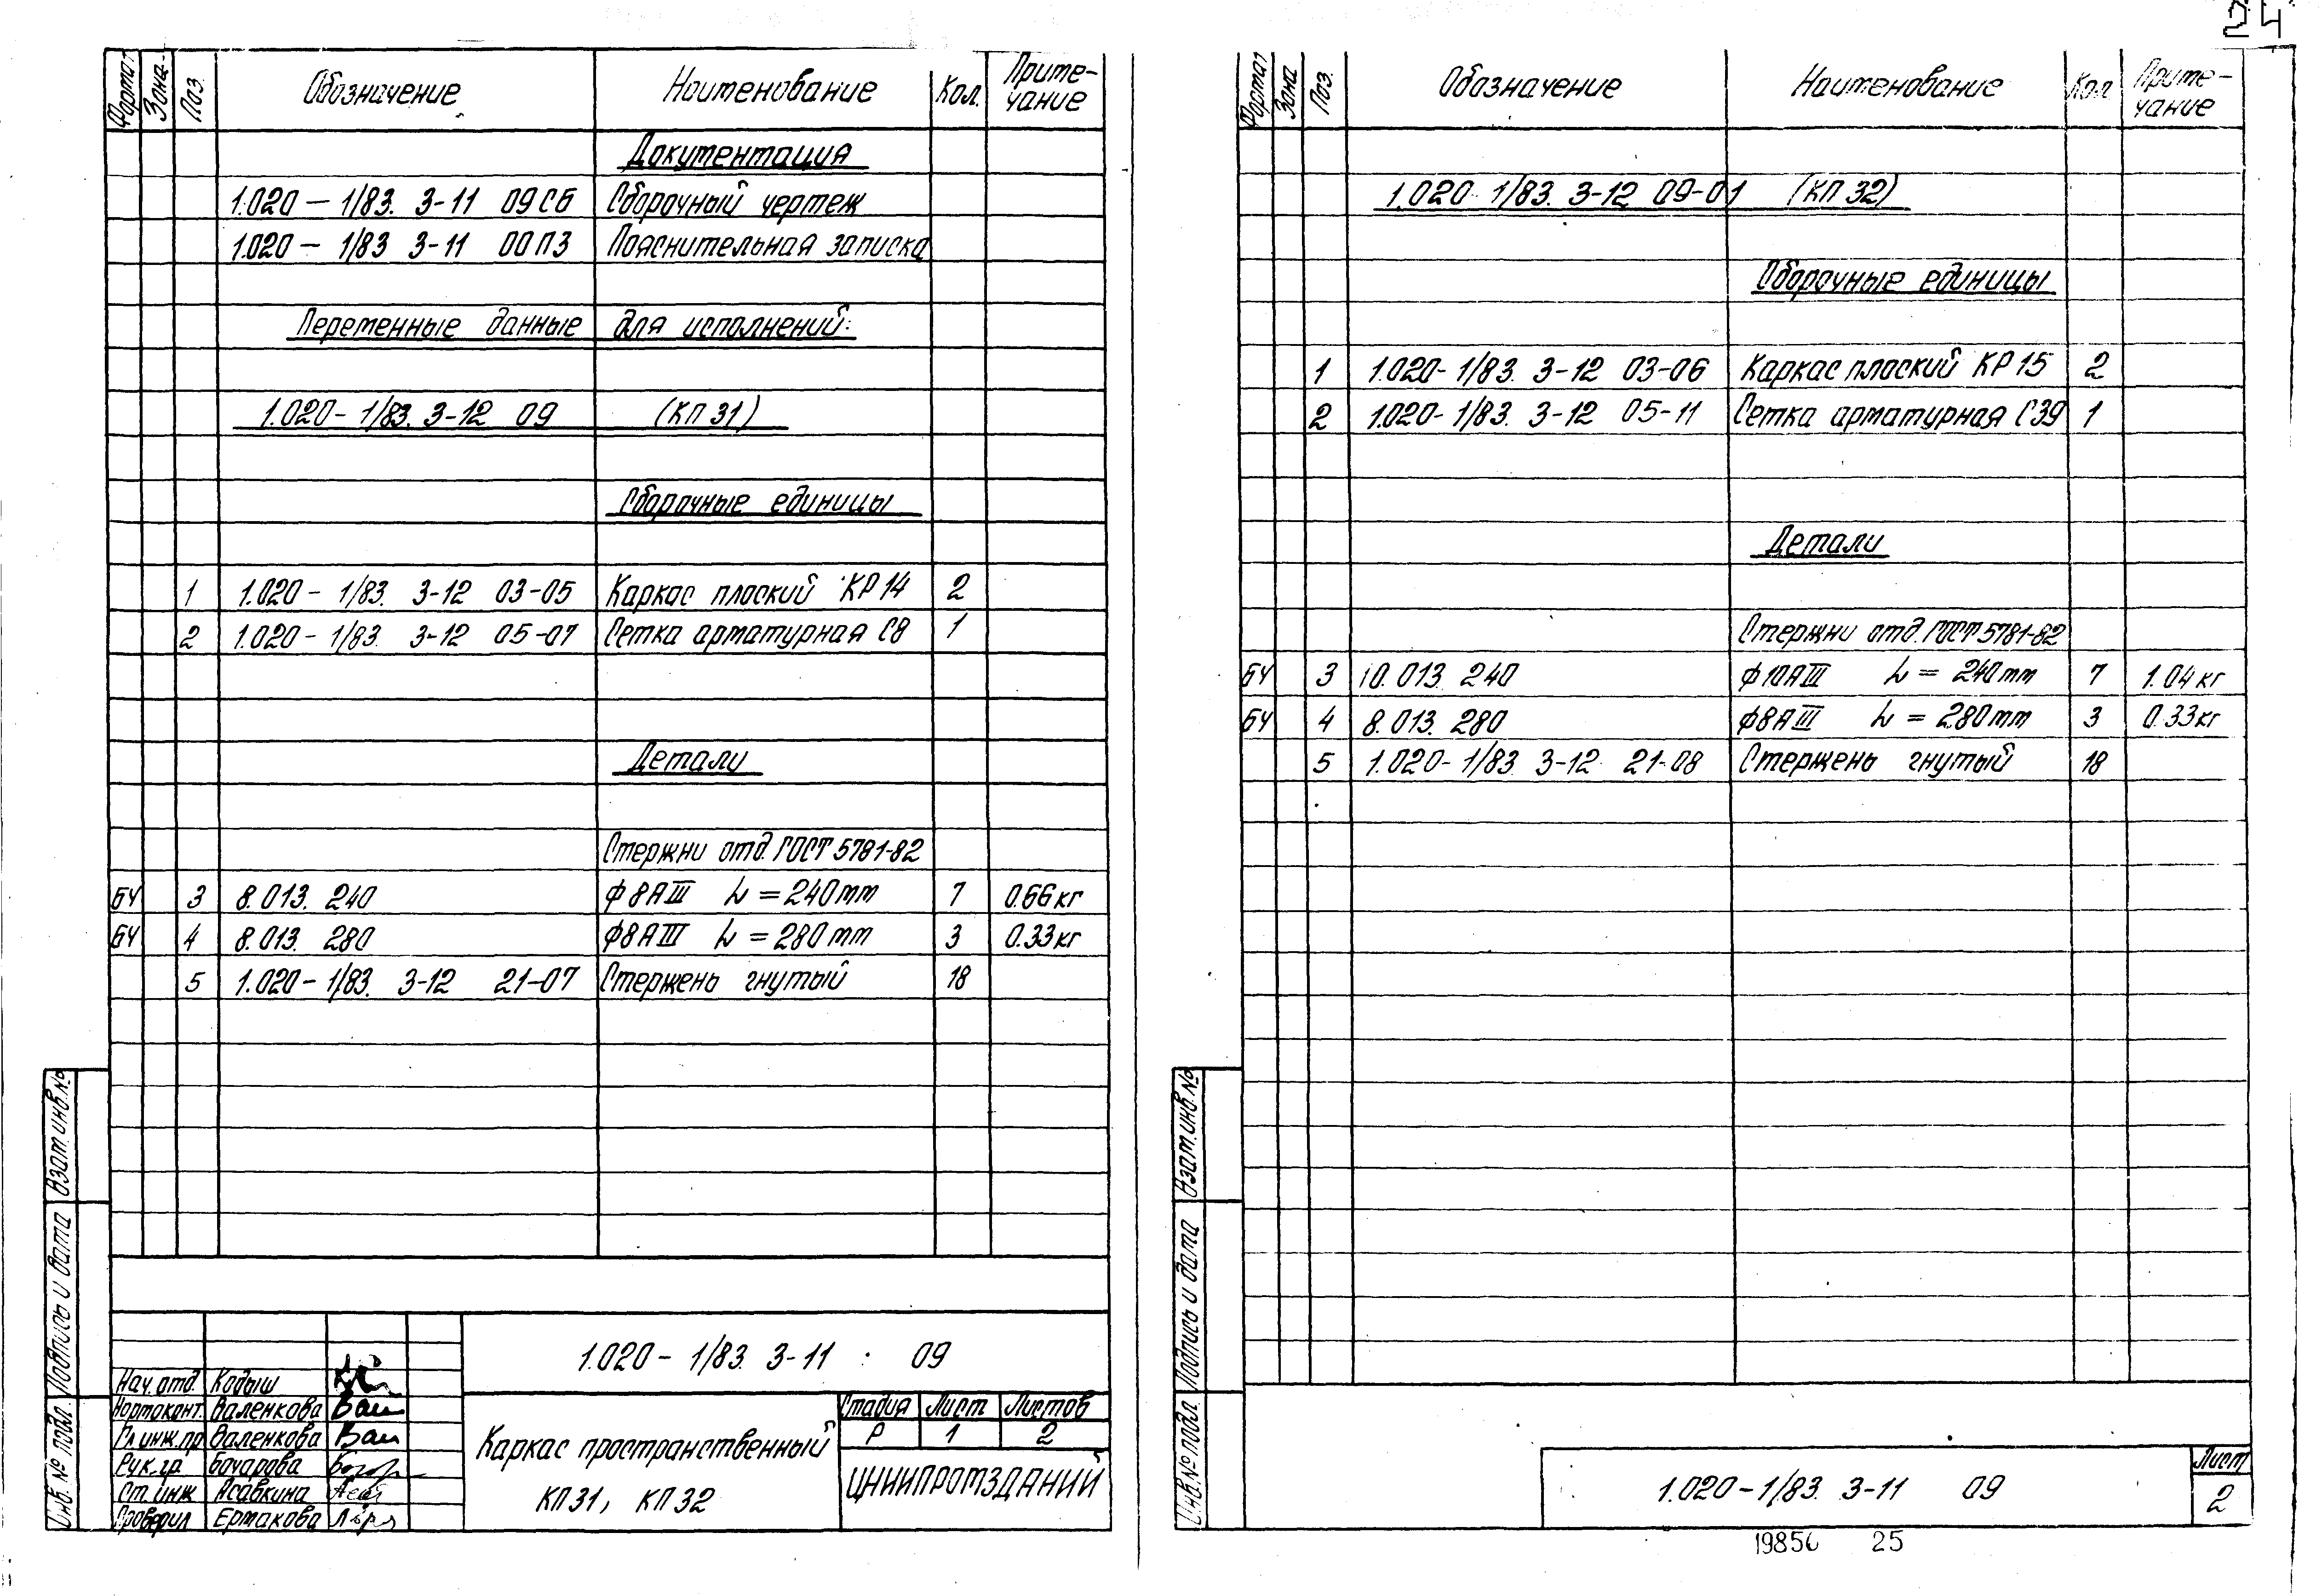 24
Формат Зона Поз. Обозначение Наименование Кол. Приме-чание
Документация
1.020 – 1/83. 3-11 09СБ Сборочный чертеж
1.020 – 1/83 3-11 00ПЗ Пояснительная записка
Переменные данные для исполнений:
1.020 - 1/83. 3-12 09 (КП 31)
Сборочные единицы
1 1.020 - 1/83. 3-12 03-05 Каркас плоский КР 14 2
2 1.020 - 1/83. 3-12 05-07 Сетка арматурная С8 1
Детали
Стержни отд. ГОСТ 5781-82
БЧ 3 8.013. 240 ф 8АIII L = 240мм 7 0.66кг
БЧ 4 8.013. 280 ф8АIII L = 280мм 3 0.33кг
5 1.020 - 1/83. 3-12 21-07 Стержень гнутый 18
Взам.инв.№
Подпись и дата
Инв. № подл.
1.020 - 1/83. 3-11 09
Нач. отд. Кодыш
Нормоконт. Валенкова
Гл.инж.пр Валенкова
Рук. гр. Бочарова
Ст. инж Асавкина
Проверил Ермакова
Каркас пространственный
КП31, КП32
Стадия Лист Листов
Р 1 2
ЦНИИПРОМЗДАНИЙ
Формат Зона Поз. Обозначение Наименование Кол Приме-чание
1.020 1/83. 3-12 09-01 (КП 32)
Сборочные единицы
1 1.020 - 1/83. 3-12 03-06 Каркас плоский КР 15 2
2 1.020 - 1/83. 3-12 05-11 Сетка арматурная С39 1
Детали
Стержни отд. ГОСТ 5781-82
БЧ 3 10. 013. 240 ф 10АIII L = 240мм 7 1.04кг
БЧ 4 8. 013. 280 ф8АIII L = 280мм 3 0.33кг
5 1.020 - 1/83. 3-12 21-08 Стержень гнутый 18
Взам.инв.№
Подпись и дата
Инв.№ подл.
1.020 - 1/83. 3-11 09
Лист
2
19856 25